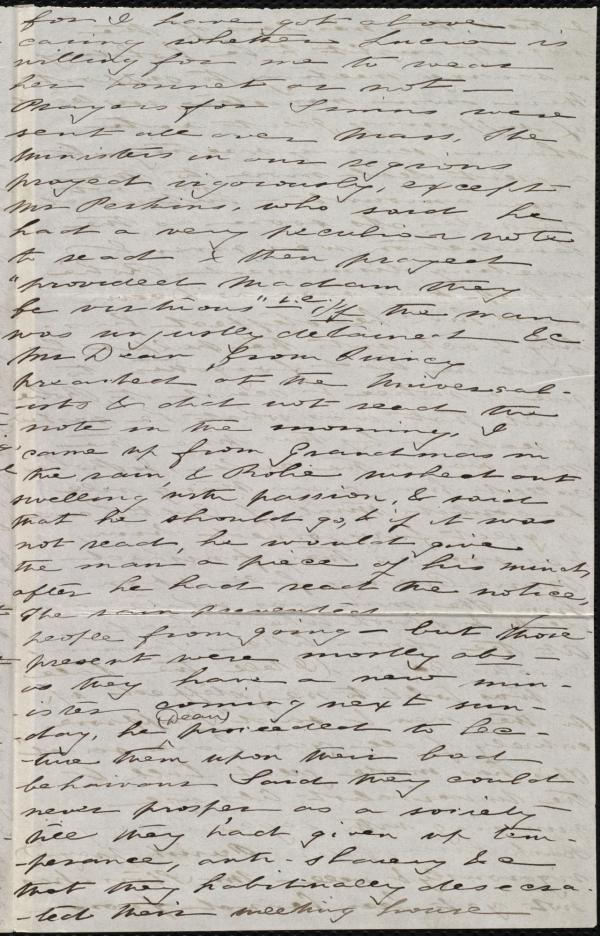 for I have got above
caring whether Lucia is
willing for me to wear
her bonnet or not —
Prayers for Simms were
sent all over Mass. The
ministers in our regions
prayed vigorously, except
Mr Perkins, who said he
had a very peculiar note
to read & then prayed
"provided Madam they
be virtuous" — i.e. if the man
was unjustly detained &c
Mr Dean from Quincy
preached at the Universal-
-ists & did not read the
note in the morning. I
came up from Grandmas in
the rain, & rushed out
swelling with passion, & said
that he should go, & if it was
not read, he would give
the man a piece of his mind
after he had read the notice,
The rain prevented
people from going — but those
present were mostly abs —
as they have a new min-
-ister coming next sun-
-day, he (Dean) proceeded to lec-
-ture them upon their bad
behaviour Said they could
never prosper as a society
till they had given up tem-
-perance, anti-slavery &c
that they habitually desecra-
-ted their meeting house